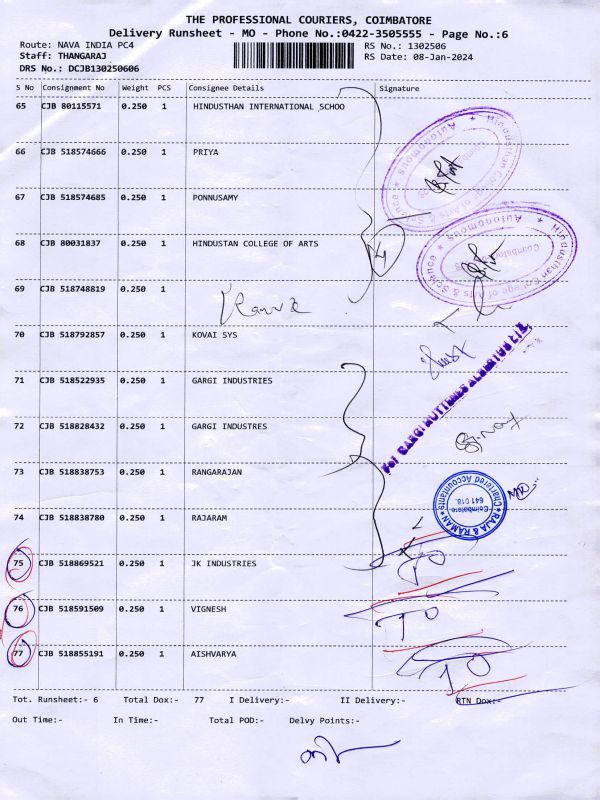 THE PROFESSIONAL COURIERS, COIMBATORE
Delivery Runsheet - MO - Phone No.:0422-3505555 - Page No.:6
Route: NAVA INDIA PC4
RS No.: 1302506
Staff: THANGARAJ
RS Date: 08-Jan-2024
DRS No.: DCJB130250606
S No Consignment No Weight PCS Consignee Details Signature
65 CJB 80115571 0.250 1 HINDUSTHAN INTERNATIONAL SCHOO
66 CJB 518574666 0.250 1 PRIYA
67 CJB 518574685 0.250 1 PONNUSAMY
68 CJB 80031837 0.250 1 HINDUSTAN COLLEGE OF ARTS
69 CJB 518748819 0.250 1
70 CJB 518792857 0.250 1 KOVAI SYS
71 CJB 518522935 0.250 1 GARGI INDUSTRIES
72 CJB 518828432 0.250 1 GARGI INDUSTRES
73 CJB 518838753 0.250 1 RANGARAJAN
74 CJB 518838780 0.250 1 RAJARAM
75 CJB 518869521 0.250 1 JK INDUSTRIES
76 CJB 518591509 0.250 1 VIGNESH
77 CJB 518855191 0.250 1 AISHVARYA
Hindusthan College of Arts & Science
Autonomous
Coimbatore
Hindusthan College of Arts & Science
Autonomous
Coimbatore
4
For GARGI HUTTENES ALBERTUS
RAJA & RAMAN
Coimbatore
641 018.
Chartered Accountants
TO
TO
TO
Tot. Runsheet:- 6 Total Dox:- 77 I Delivery:- II Delivery:- RTN Dox:-
Out Time:- In Time:- Total POD:- Delvy Points:-